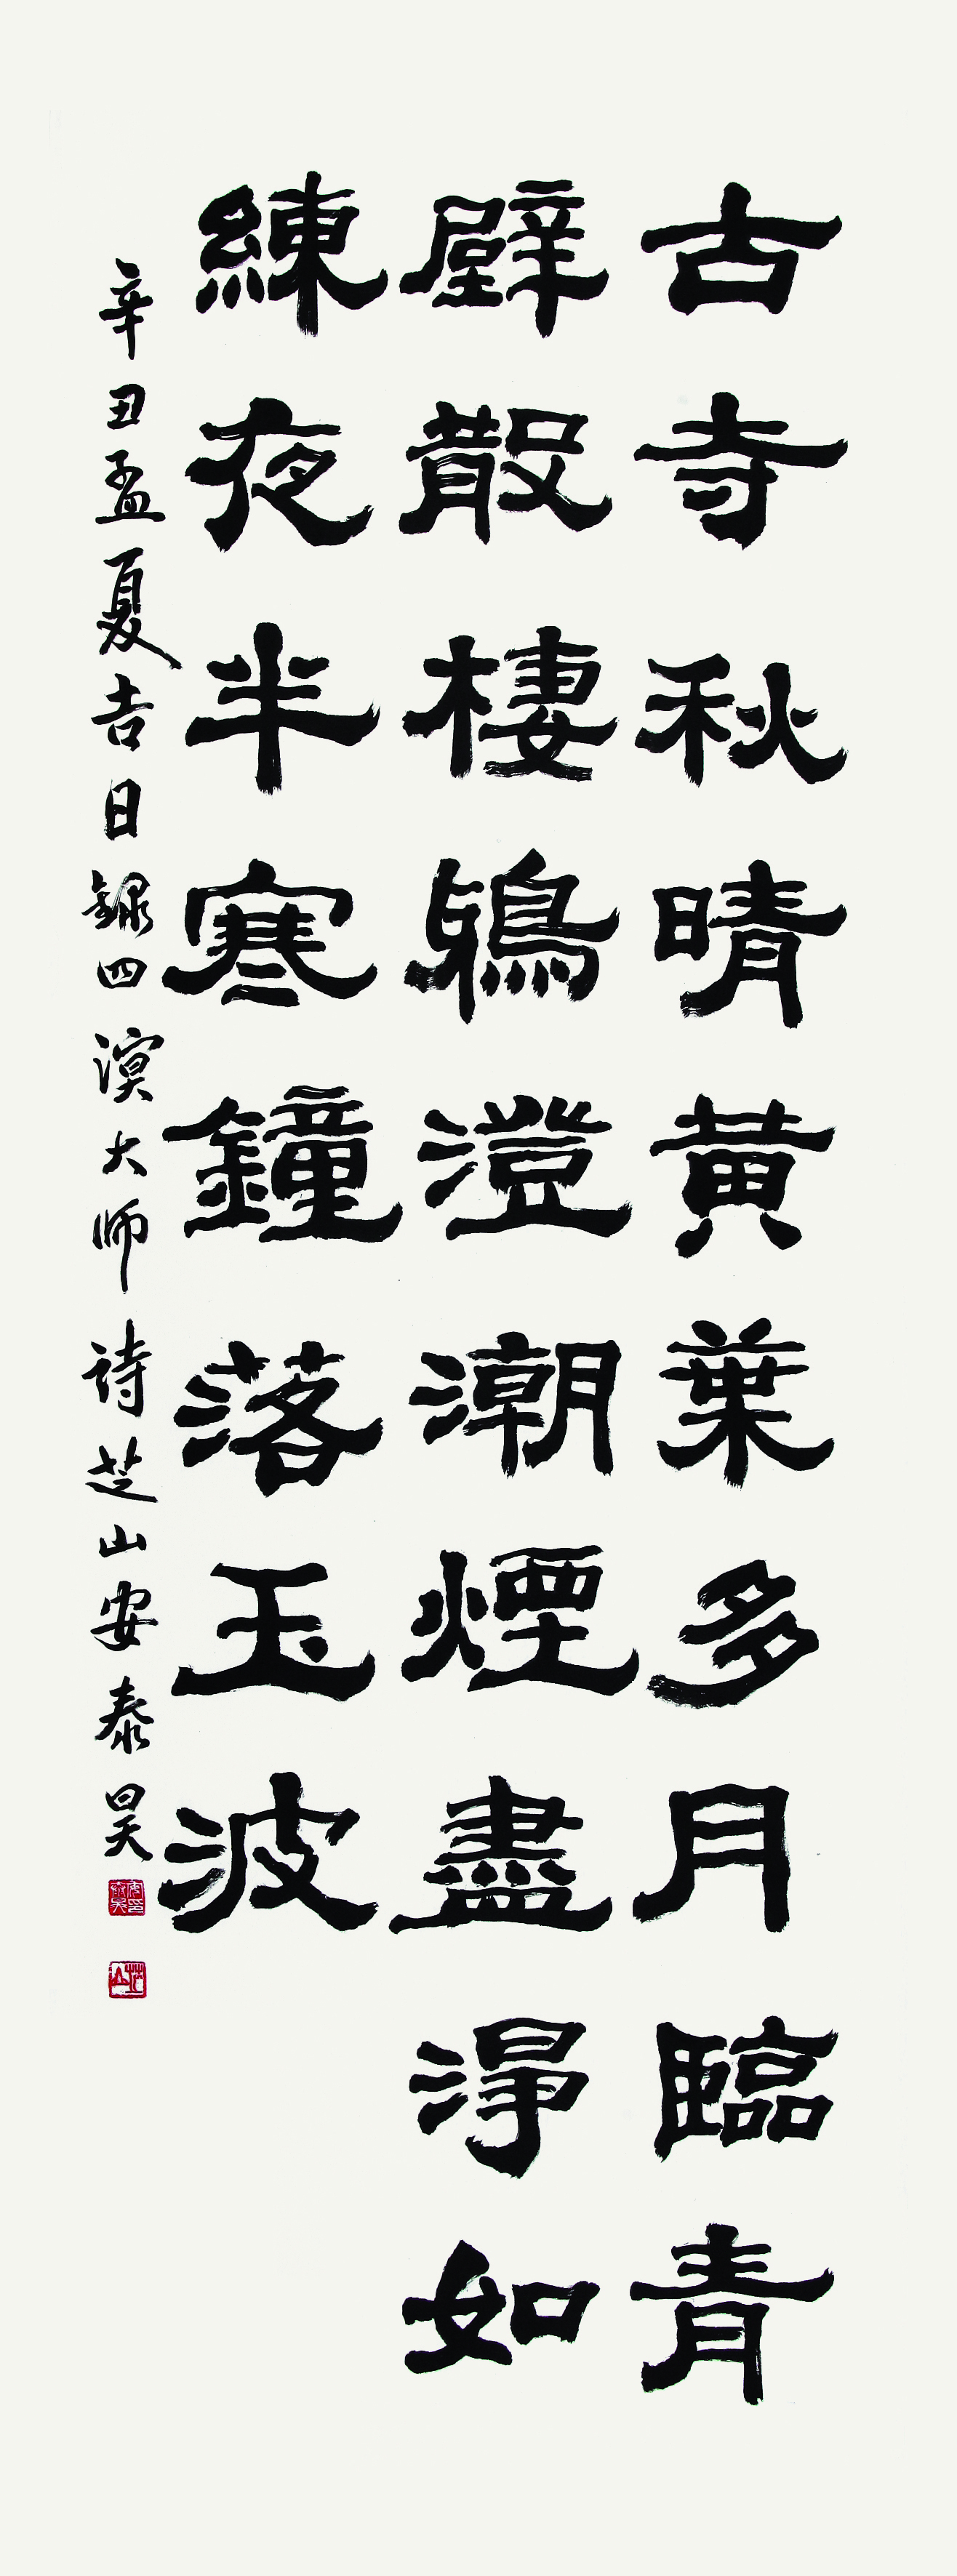 古寺秋晴黄葉多月臨青
壁散棲鴉澄潮煙盡淨如
練夜半寒鐘落玉波
辛丑孟夏吉日錄四溟大师诗芝山安泰昊